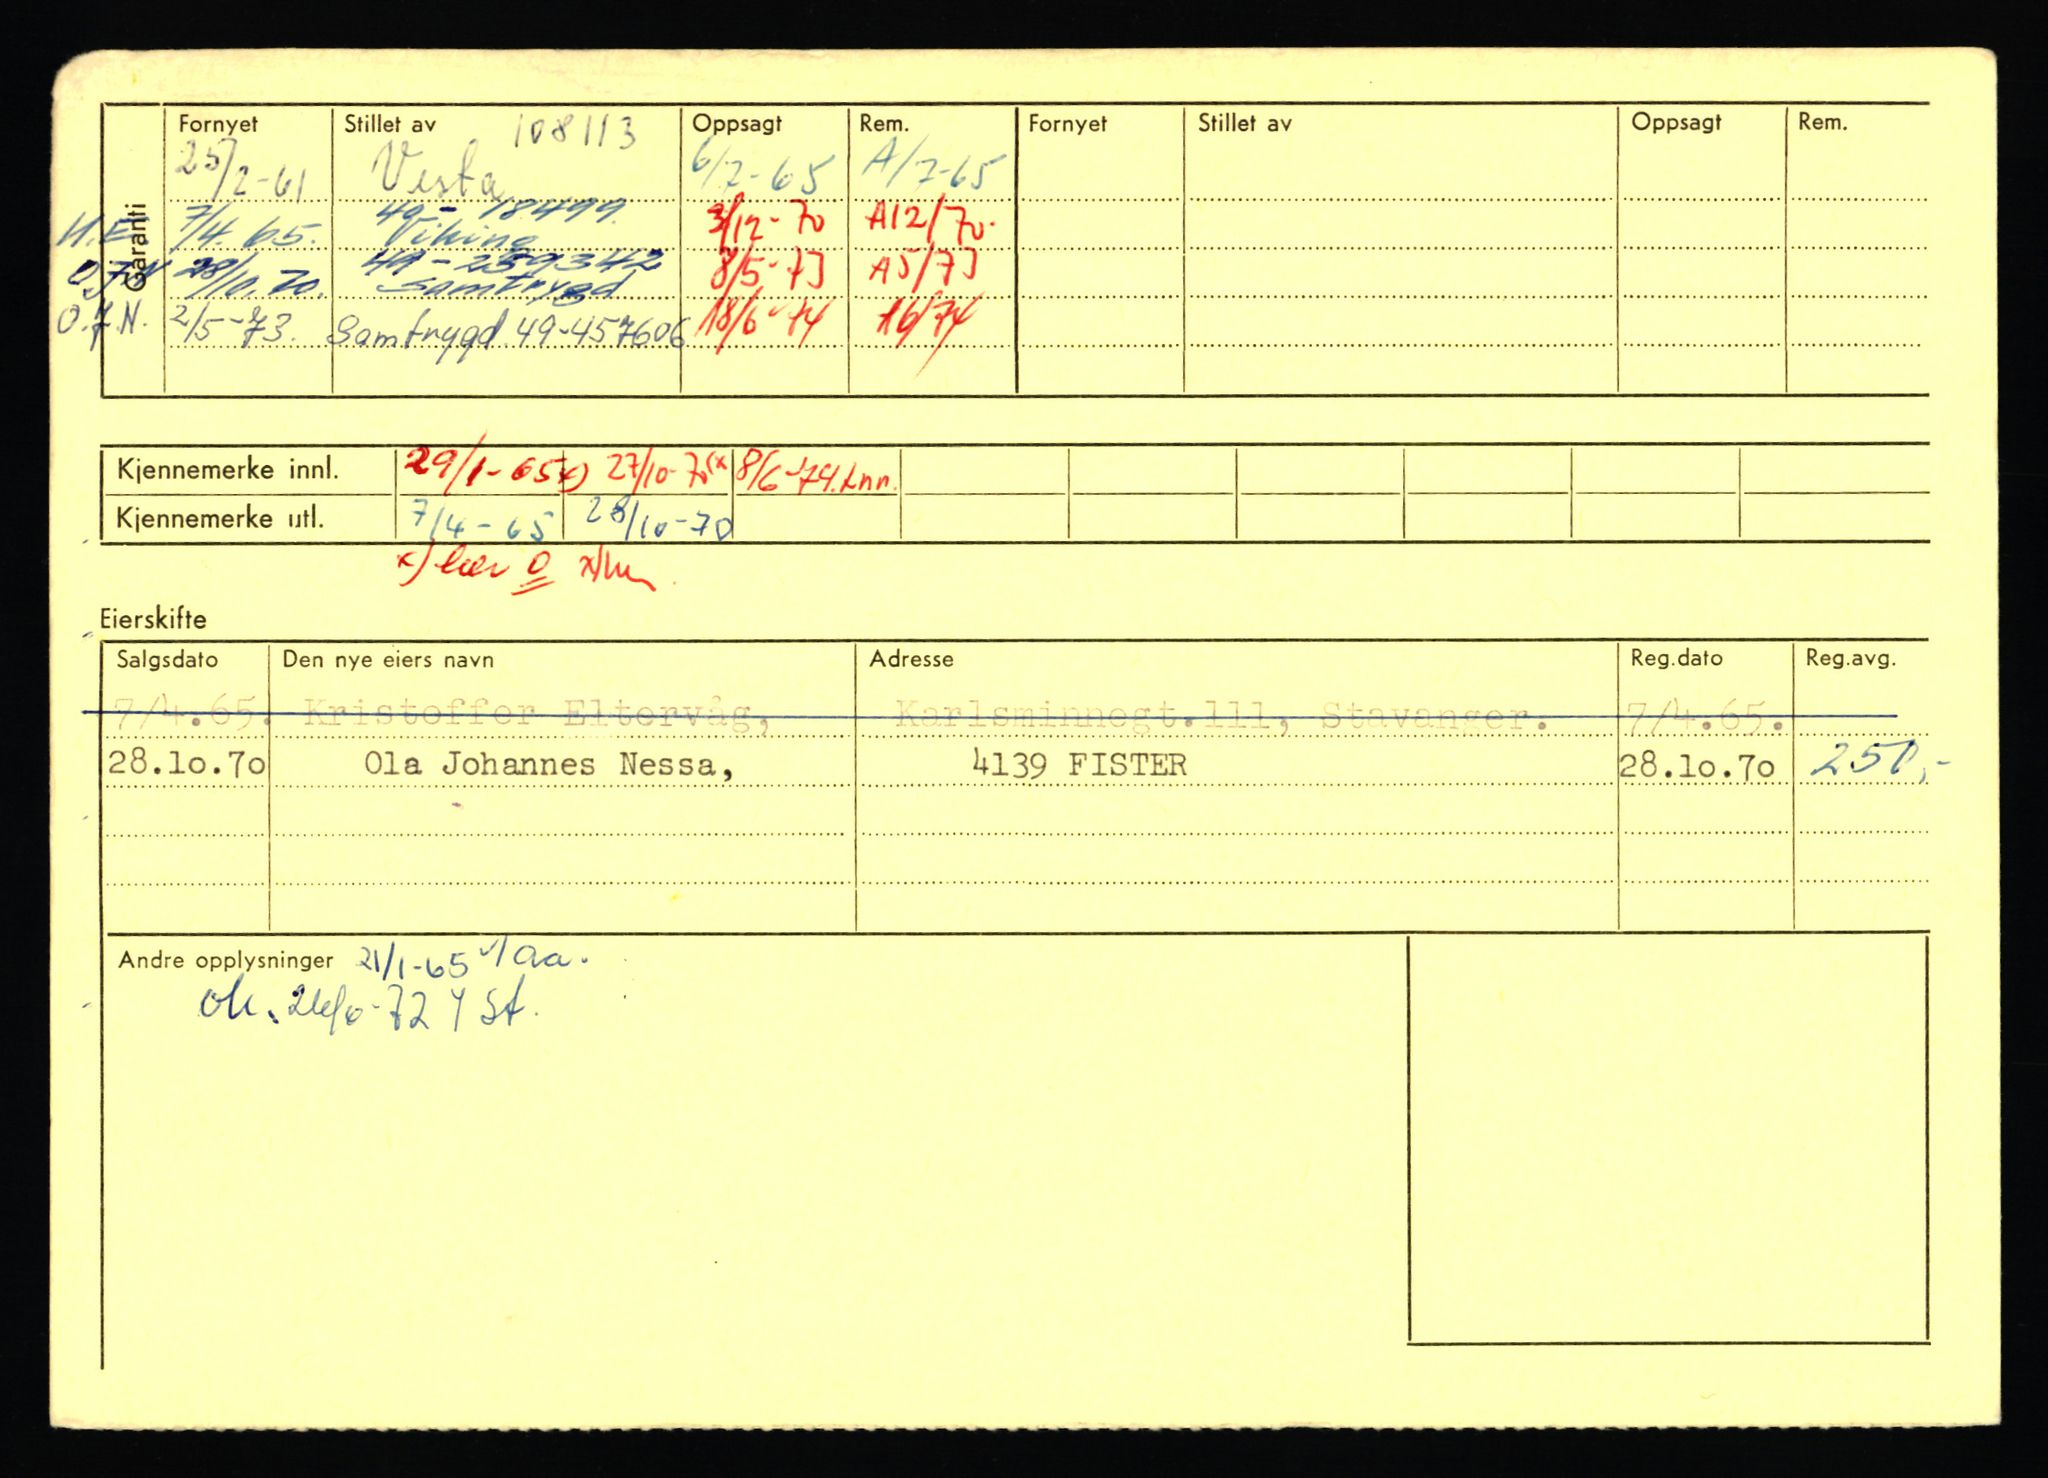 Garanti
Fornyet Stillet av 108113 Oppsagt Rem. Fornyet Stillet av Oppsagt Rem.
25/2-61 Vesta 6/7-65 A/7-65
7/4.65. 49-18499 Viking 3/12-70 A12/70.
28/10.70. 49-259342 Samtrygd 8/5-73 A5/73
O.J.N. 2/5-73. Samtrygd 49-457606 18/6-74 16/74
Kjennemerke innl. 29/1-65 x) 27/10-70 (x 8/6-74. Inn.
Kjennemerke utl. 7/4-65 28/10-70
x)
Eierskifte
Salgsdato Den nye eiers navn Adresse Reg.dato Reg.avg.
7/4.65. Kristoffer Eltervåg, Karlsminnegt.111, Stavanger. 7/4.65.
28.10.70 Ola Johannes Nessa, 4139 FISTER 28.10.70 250,-
Andre opplysninger 21/1-65
ok. St.